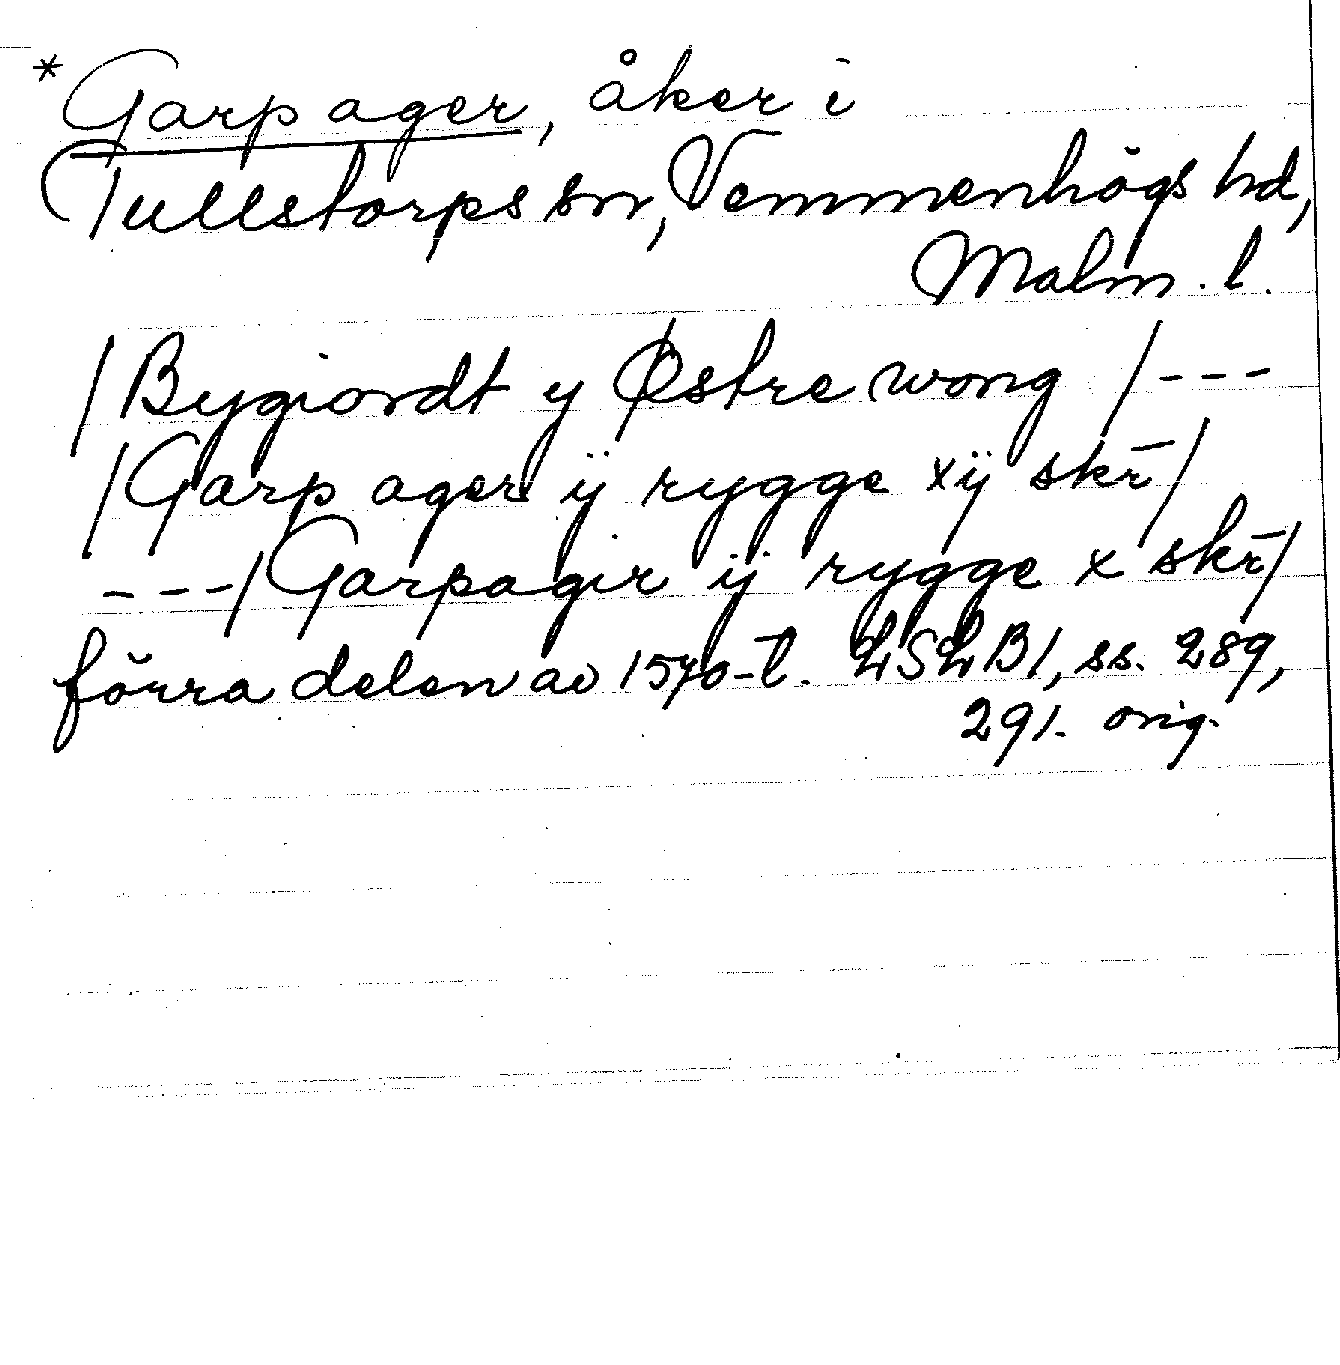 *Garp ager, åker i
Tullstorps sn, Vemmenhögs hd,
Malm. l.
/Bygiordt y Østre wong /---
/Garp ager ÿ rygge xÿ skr̄/
---/Garpagir ÿ rygge x skr̄/
förra delen av 1570-t. LSLB1, ss. 289,
291. orig.